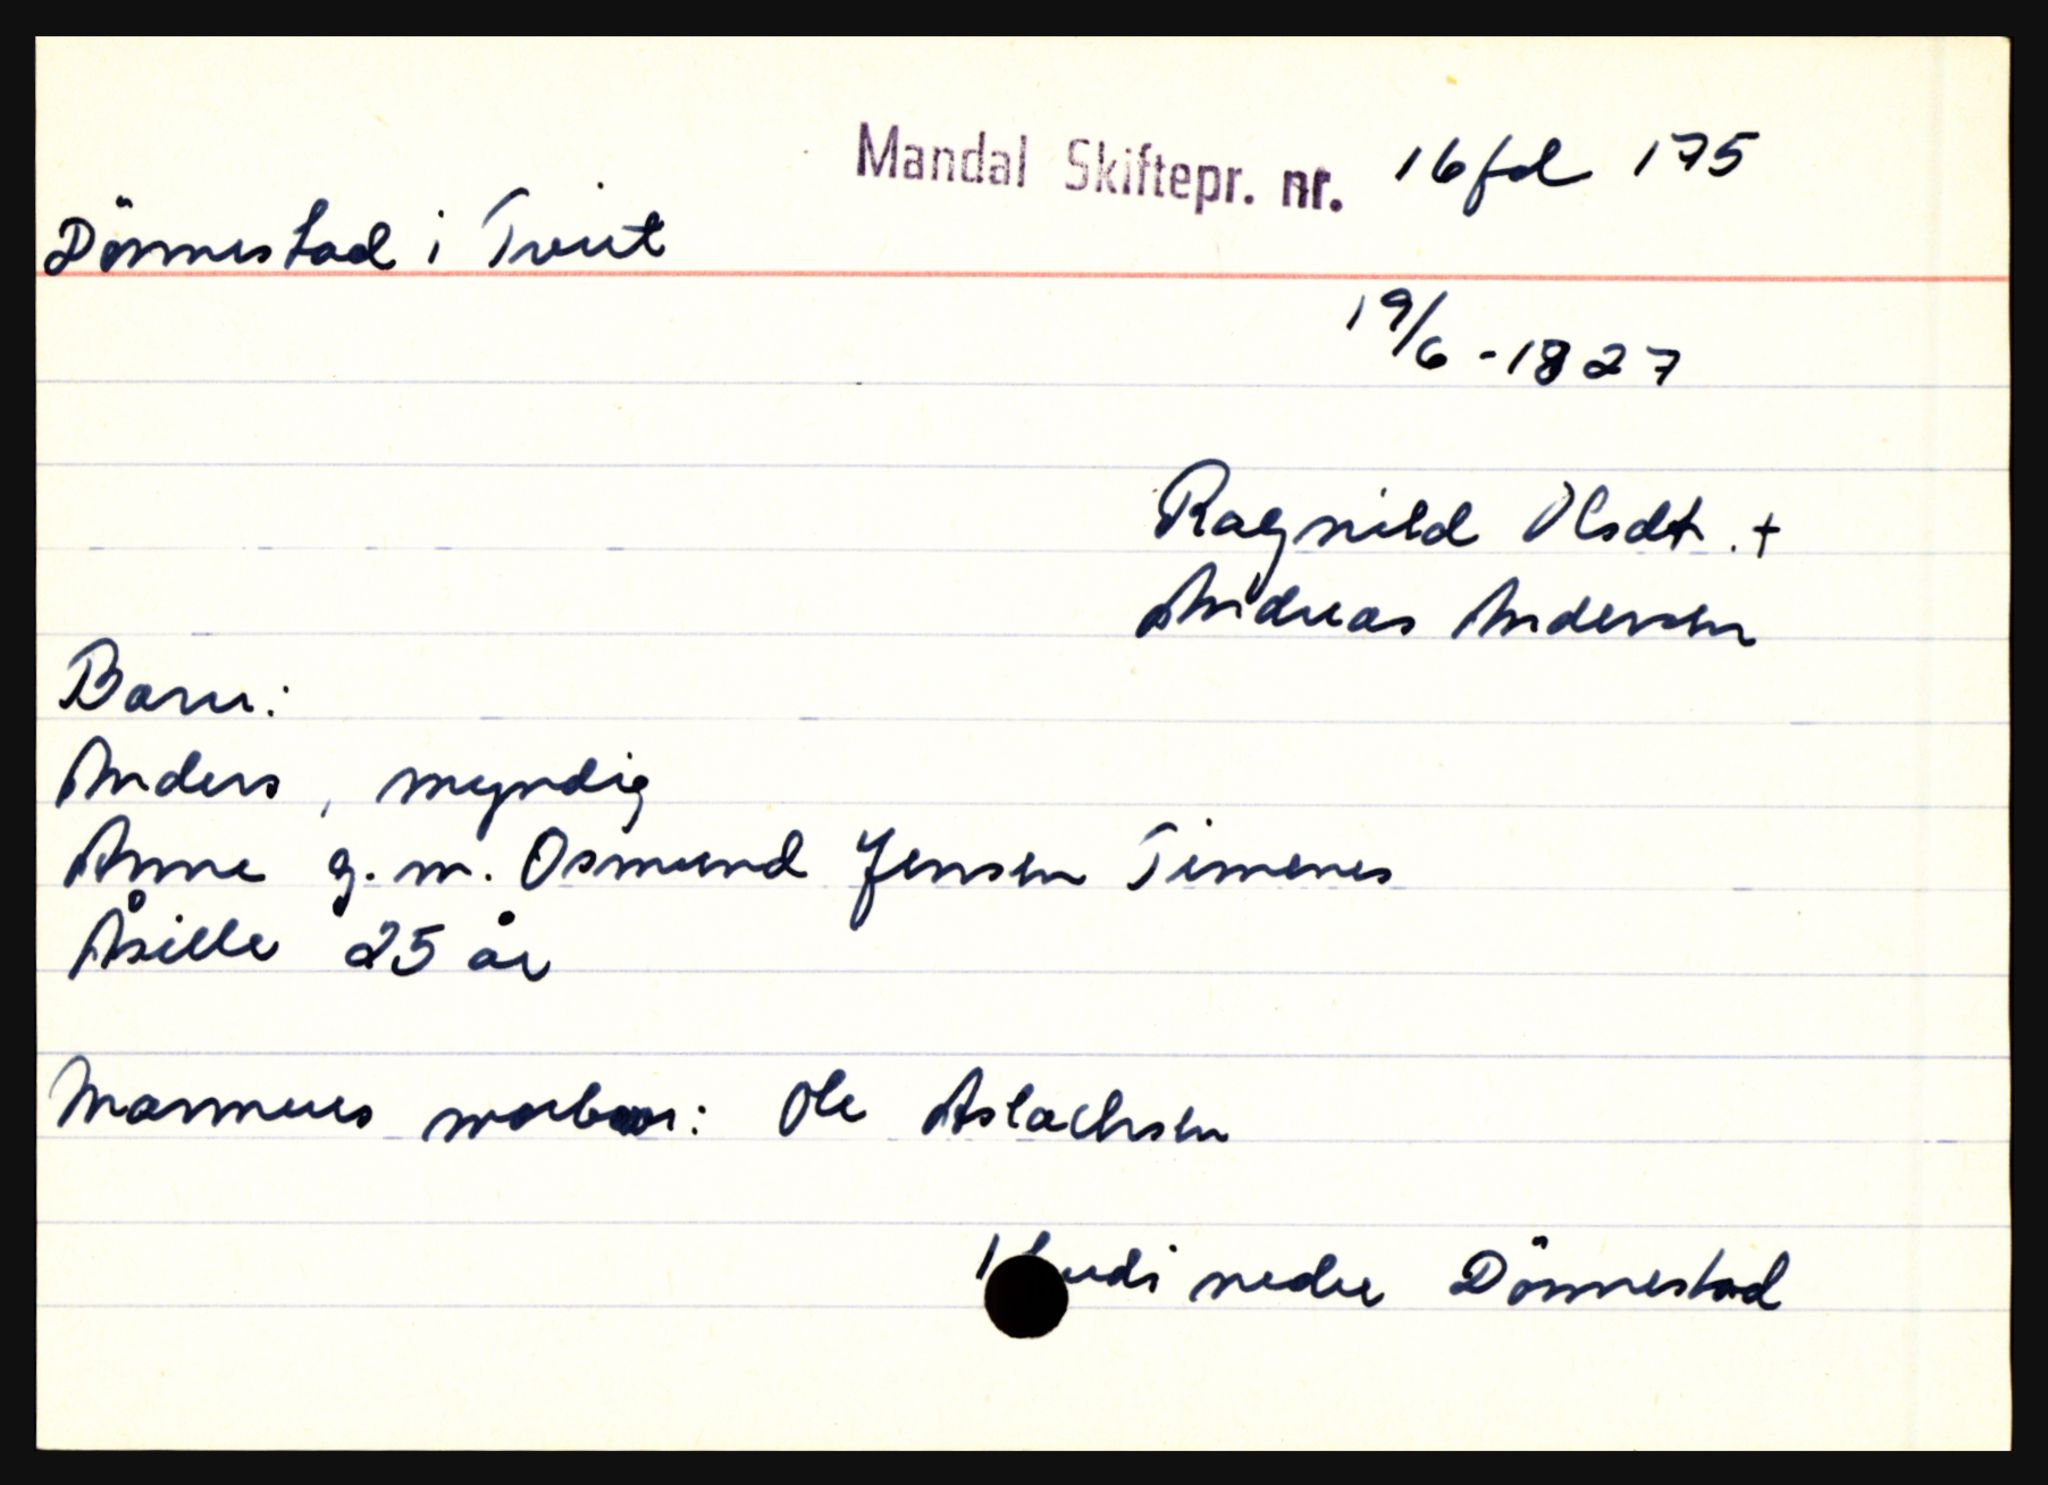 Mandal Skiftepr. nr. 16 fol 175
Dönnestad i Tveit
19/6 - 1827
Ragnild Olsdt. +
Andreas Andersen
Barn:
Anders, myndig
Anne g.m. Osmund Jensen Timenes
Åsille 25 år
Mannens morbror: Ole Aslachsen
nedre Dönnestad